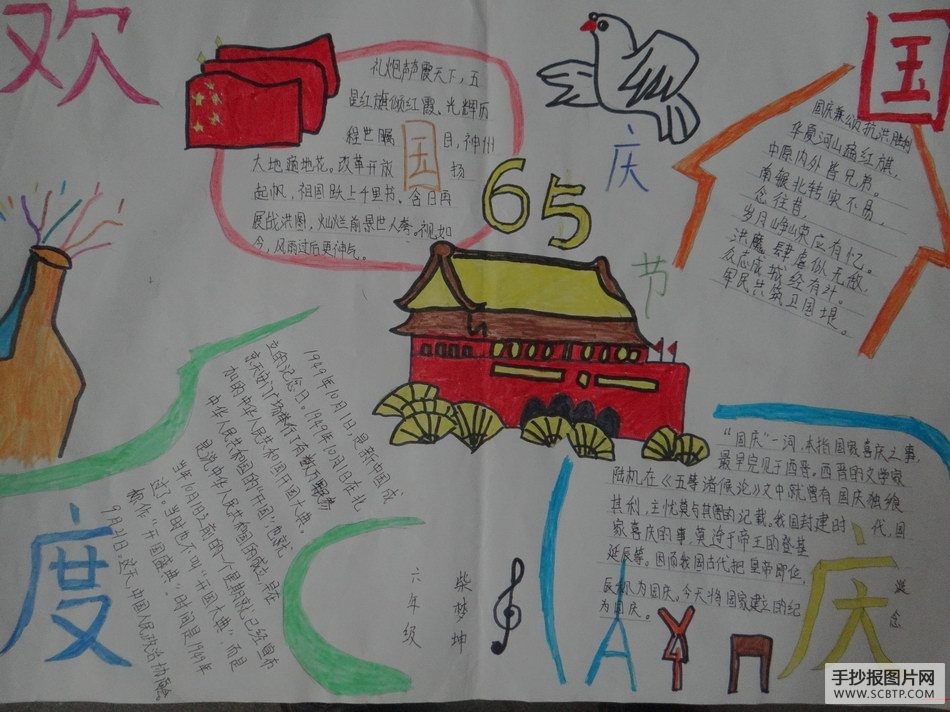 欢
度
国
庆
65
国
庆
节
礼炮声声震天下，五
星红旗倾红霞。光辉历
程世瞩目，神州
大地遍地花。改革开放扬
起帆，祖国跃上千里书。今日再
展战洪图，灿烂前景世人夸。视如
今，风雨过后更神气。
国庆兼颂抗洪胜利
华夏河山插红旗，
中原内外皆兄弟。
南辕北转实不易，
念往昔，
岁月峥嵘应有忆。
洪魔肆虐似无敌，
众志成城经有计。
军民共筑卫国堤。
1949年10月1日，是新中国成
立的纪念日。1949年10月1日在北
京天安门广场举行了有数万
加的中华人民共和国开国大典。
中华人民共和国的"开国"也就
是说中华人民共和国的成立，早在
当年10月1日之前的一个星期就已经宣布
过了。当时也不叫"开国大典"，而是
做作"开国盛典"。时间是1949年
9月21日。这天，中国人民政治协商
"国庆"一词，本指国家喜庆之事，
最早见于西晋。西晋的文学家
陆机在《五等诸侯论》文中就曾有国庆独飨
其利，主忧莫与其害的记载。我国封建时代，国
家喜庆的事，莫过于帝王的登基
诞辰等。因而我国古代把皇帝即位，
辰称为国庆。今天将国家建立的纪念
为国庆。
六年级
柴梦坤
手抄报图片网
WWW.SCBTP.COM